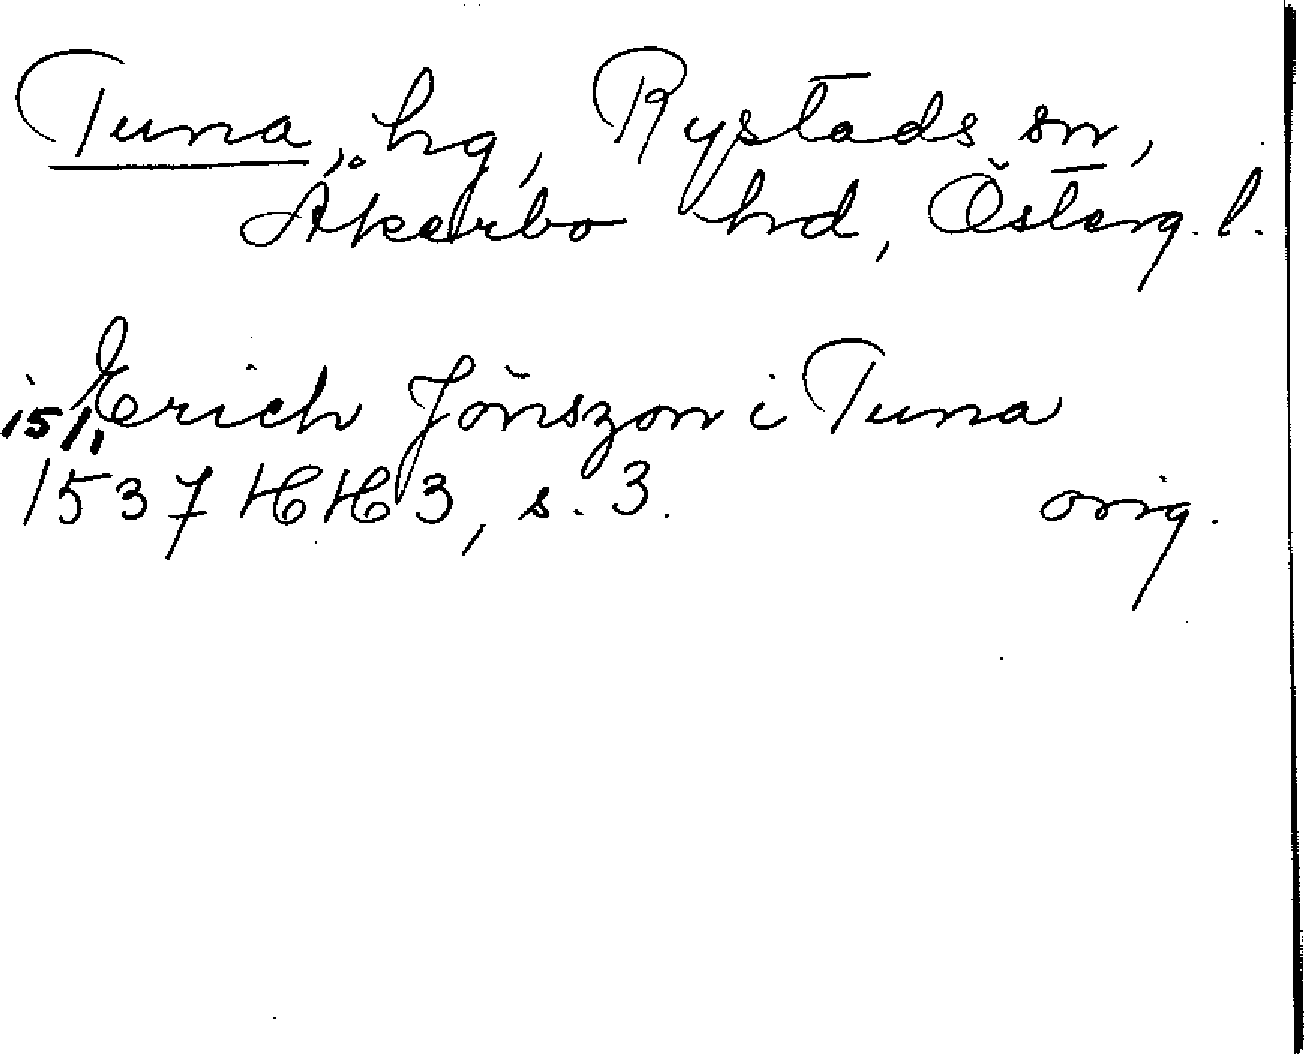 Tuna, hg, Rystads sn,
Åkerbo hd, Österg. l.
15/1 Erich Jönszon i Tuna
1537 HH 3, s. 3. orig.